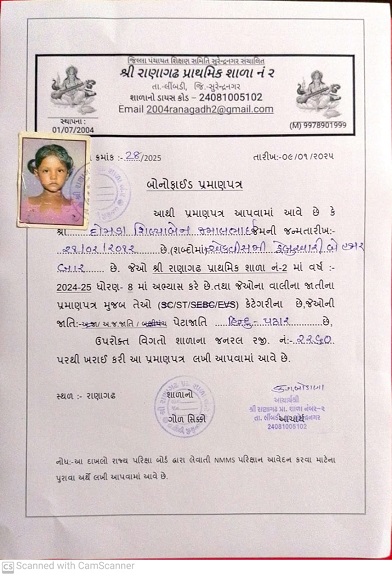 જિલ્લા પંચાયત શિક્ષણ સમિતિ સુરેન્દ્રનગર સંચાલિત
શ્રી રાણાગઢ પ્રાથમિક શાળા નં ૨
તા.-લીંબડી, જિ.-સુરેન્દ્રનગર
શાળાનો ડાયસ કોડ - 24081005102
Email 2004ranagadh2@gmail.com
સ્થાપના :
01/07/2004
(M) 9978901999
ક્રમાંક :- 28/2025 તારીખ:-૦૯/૦૧/૨૦૨૫
બોનોફાઈડ પ્રમાણપત્ર
આથી પ્રમાણપત્ર આપવામાં આવે છે કે
શિલ્પાબેન જેમની જન્મતારીખ:-
૨૧/૦૨/૨૦૧૨ છે.(શબ્દોમાં) એકવીસમી ફેબ્રુઆરી બે હજાર
બાર છે. જેઓ શ્રી રાણાગઢ પ્રાથમિક શાળા નં-2 માં વર્ષ :-
2024-25 ધોરણ- 8 માં અભ્યાસ કરે છે.તથા જેઓના વાલીના જાતીના
પ્રમાણપત્ર મુજબ તેઓ (SC/ST/SEBC/EWS) કેટેગરીના છે,જેઓની
જાતિ:- અ.જા/ અ.જ.જાતિ / બક્ષીપંચ પેટાજાતિ હિન્દુ - પઢાર છે,
ઉપરોક્ત વિગતો શાળાના જનરલ રજી. નં:-૨૨૬૦
પરથી ખરાઈ કરી આ પ્રમાણપત્ર લખી આપવામાં આવે છે.
સ્થળ :- રાણાગઢ શાળાનો
ગોળ સિક્કો
આચાર્યશ્રી
શ્રી રાણાગઢ પ્રા. શાળા નંબર-૨
તા. લીંબડી, જિ. સુરેન્દ્રનગર
24081005102
આચાર્ય
નોંધ:-આ દાખલો રાજ્ય પરિક્ષા બોર્ડ દ્વારા લેવાતી NMMS પરિક્ષાન આવેદન કરવા માટેના
પુરાવા અર્થે લખી આપવામાં આવે છે.
CS Scanned with CamScanner